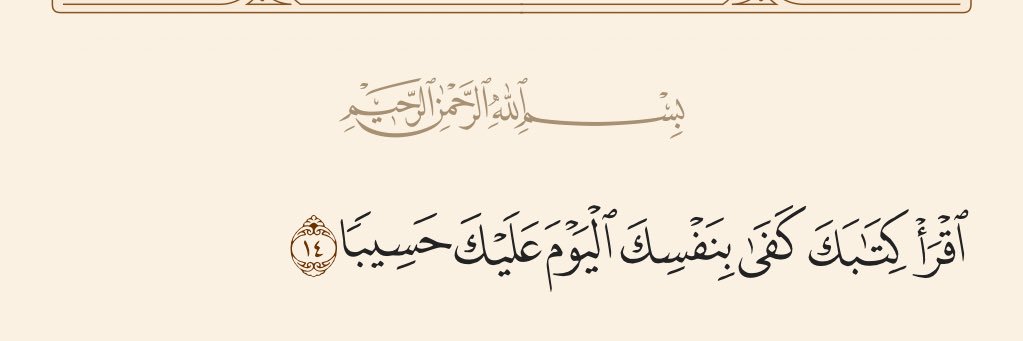 بِسْمِ ٱللَّهِ ٱلرَّحْمَٰنِ ٱلرَّحِيمِ
ٱقْرَأْ كِتَٰبَكَ كَفَىٰ بِنَفْسِكَ ٱلْيَوْمَ عَلَيْكَ حَسِيبًا ١٤